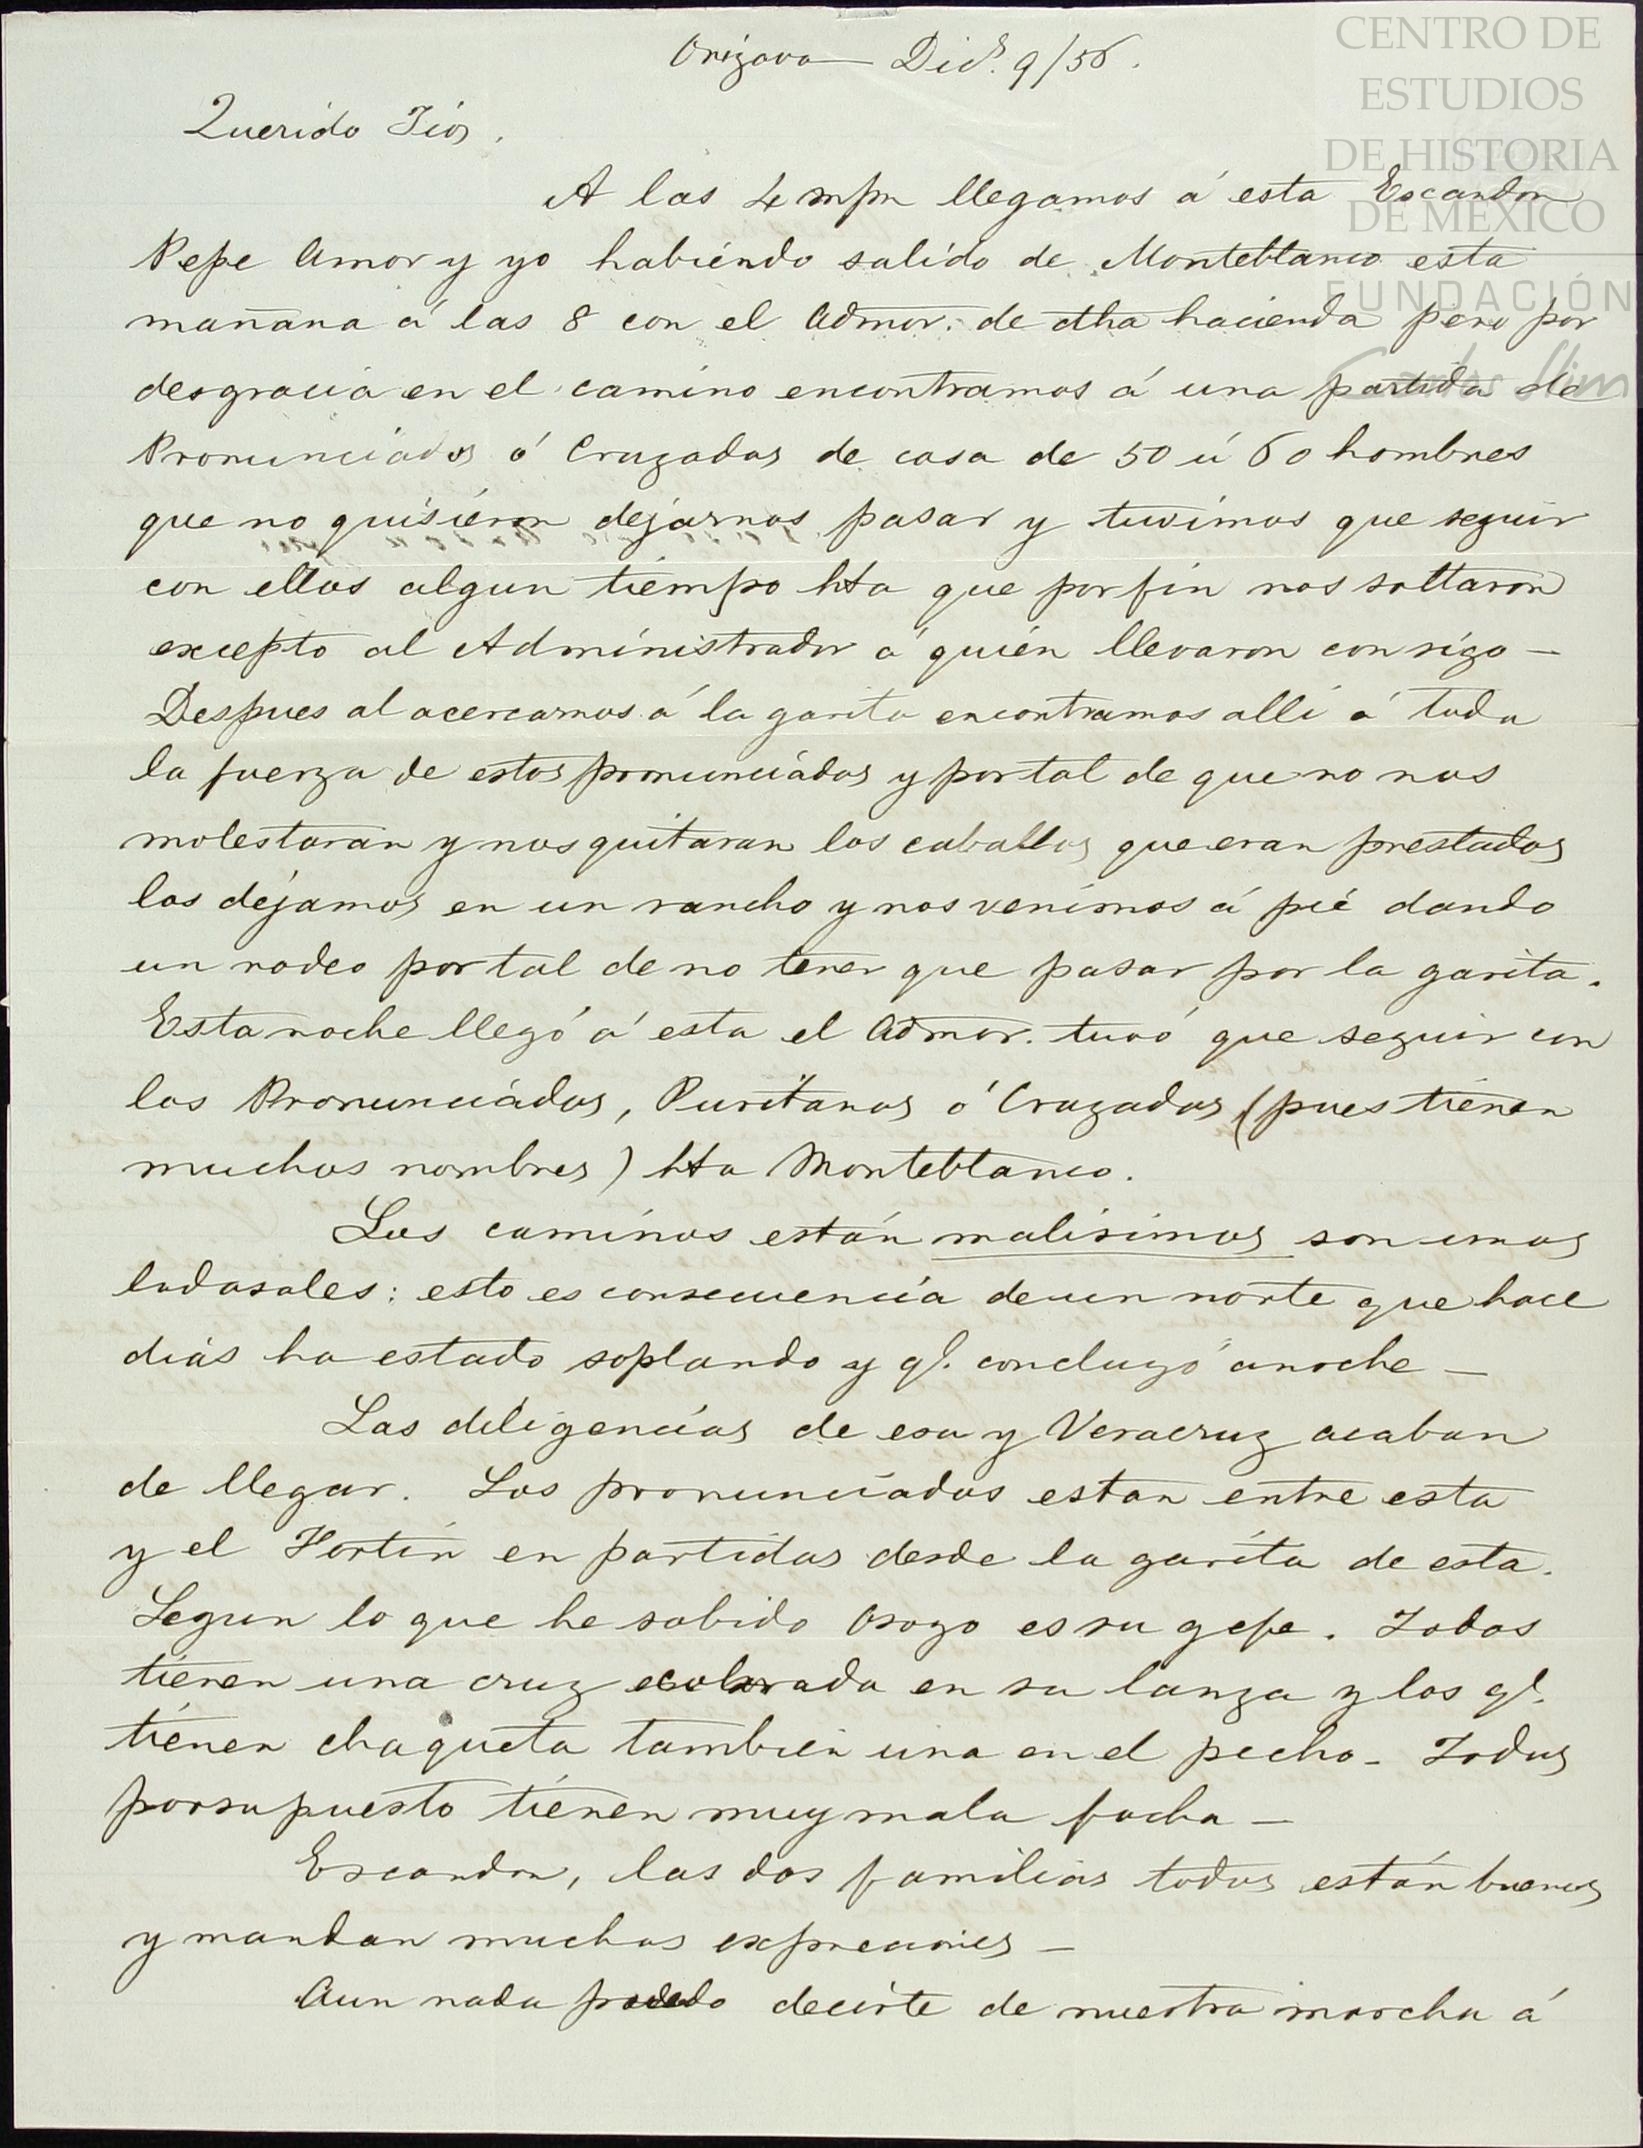 Orizava Dic.e 9/56.
CENTRO DE
ESTUDIOS
DE HISTORIA
DE MÉXICO
FUNDACIÓN
Carlos Slim
Querido Tios,
A las 4 llegamos á esta Escandon
Pepe Amor y yo habiendo salido de Monteblanco esta
mañana á las 8 con el Admor. de dha hacienda pero por
desgracia en el camino encontramos á una partida de
Pronunciados ó Cruzados de casa de 50 ú 60 hombres
que no quisieron dejarnos pasar y tuvimos que seguir
con ellos algun tiempo hta que por fin nos soltaron
excepto al Administrador á quién llevaron consigo —
Despues al acercarnos á la garita encontramos alli á toda
la fuerza de estos pronunciados y por tal de que no nos
molestaran y nos quitaran los caballos que eran prestados
los dejamos en un rancho y nos venimos á pié dando
un rodeo por tal de no tener que pasar por la garita.
Esta noche llegó á esta el Admor. tuvó que seguir con
los Pronunciados, Puritanos ó Cruzados (pues tienen
muchos nombres) hta Monteblanco.
Los caminos están malisimos son unos
lodasales: esto es consecuencia de un norte que hace
dias ha estado soplando y q.e concluyó anoche —
Las diligencias de esa y Veracruz acaban
de llegar. Los pronunciados estan entre esta
y el Fortin en partidas desde la garita de esta.
Segun lo que he sabido Osogo es su gefe. Todos
tienen una cruz colorada en su lanza y los q.e
tienen chaqueta tambien una en el pecho - Todos
por supuesto tienen muy mala facha —
Escandon, las dos familias todos están buenos
y mandan muchas expreciones —
Aun nada puedo decirte de nuestra marcha á